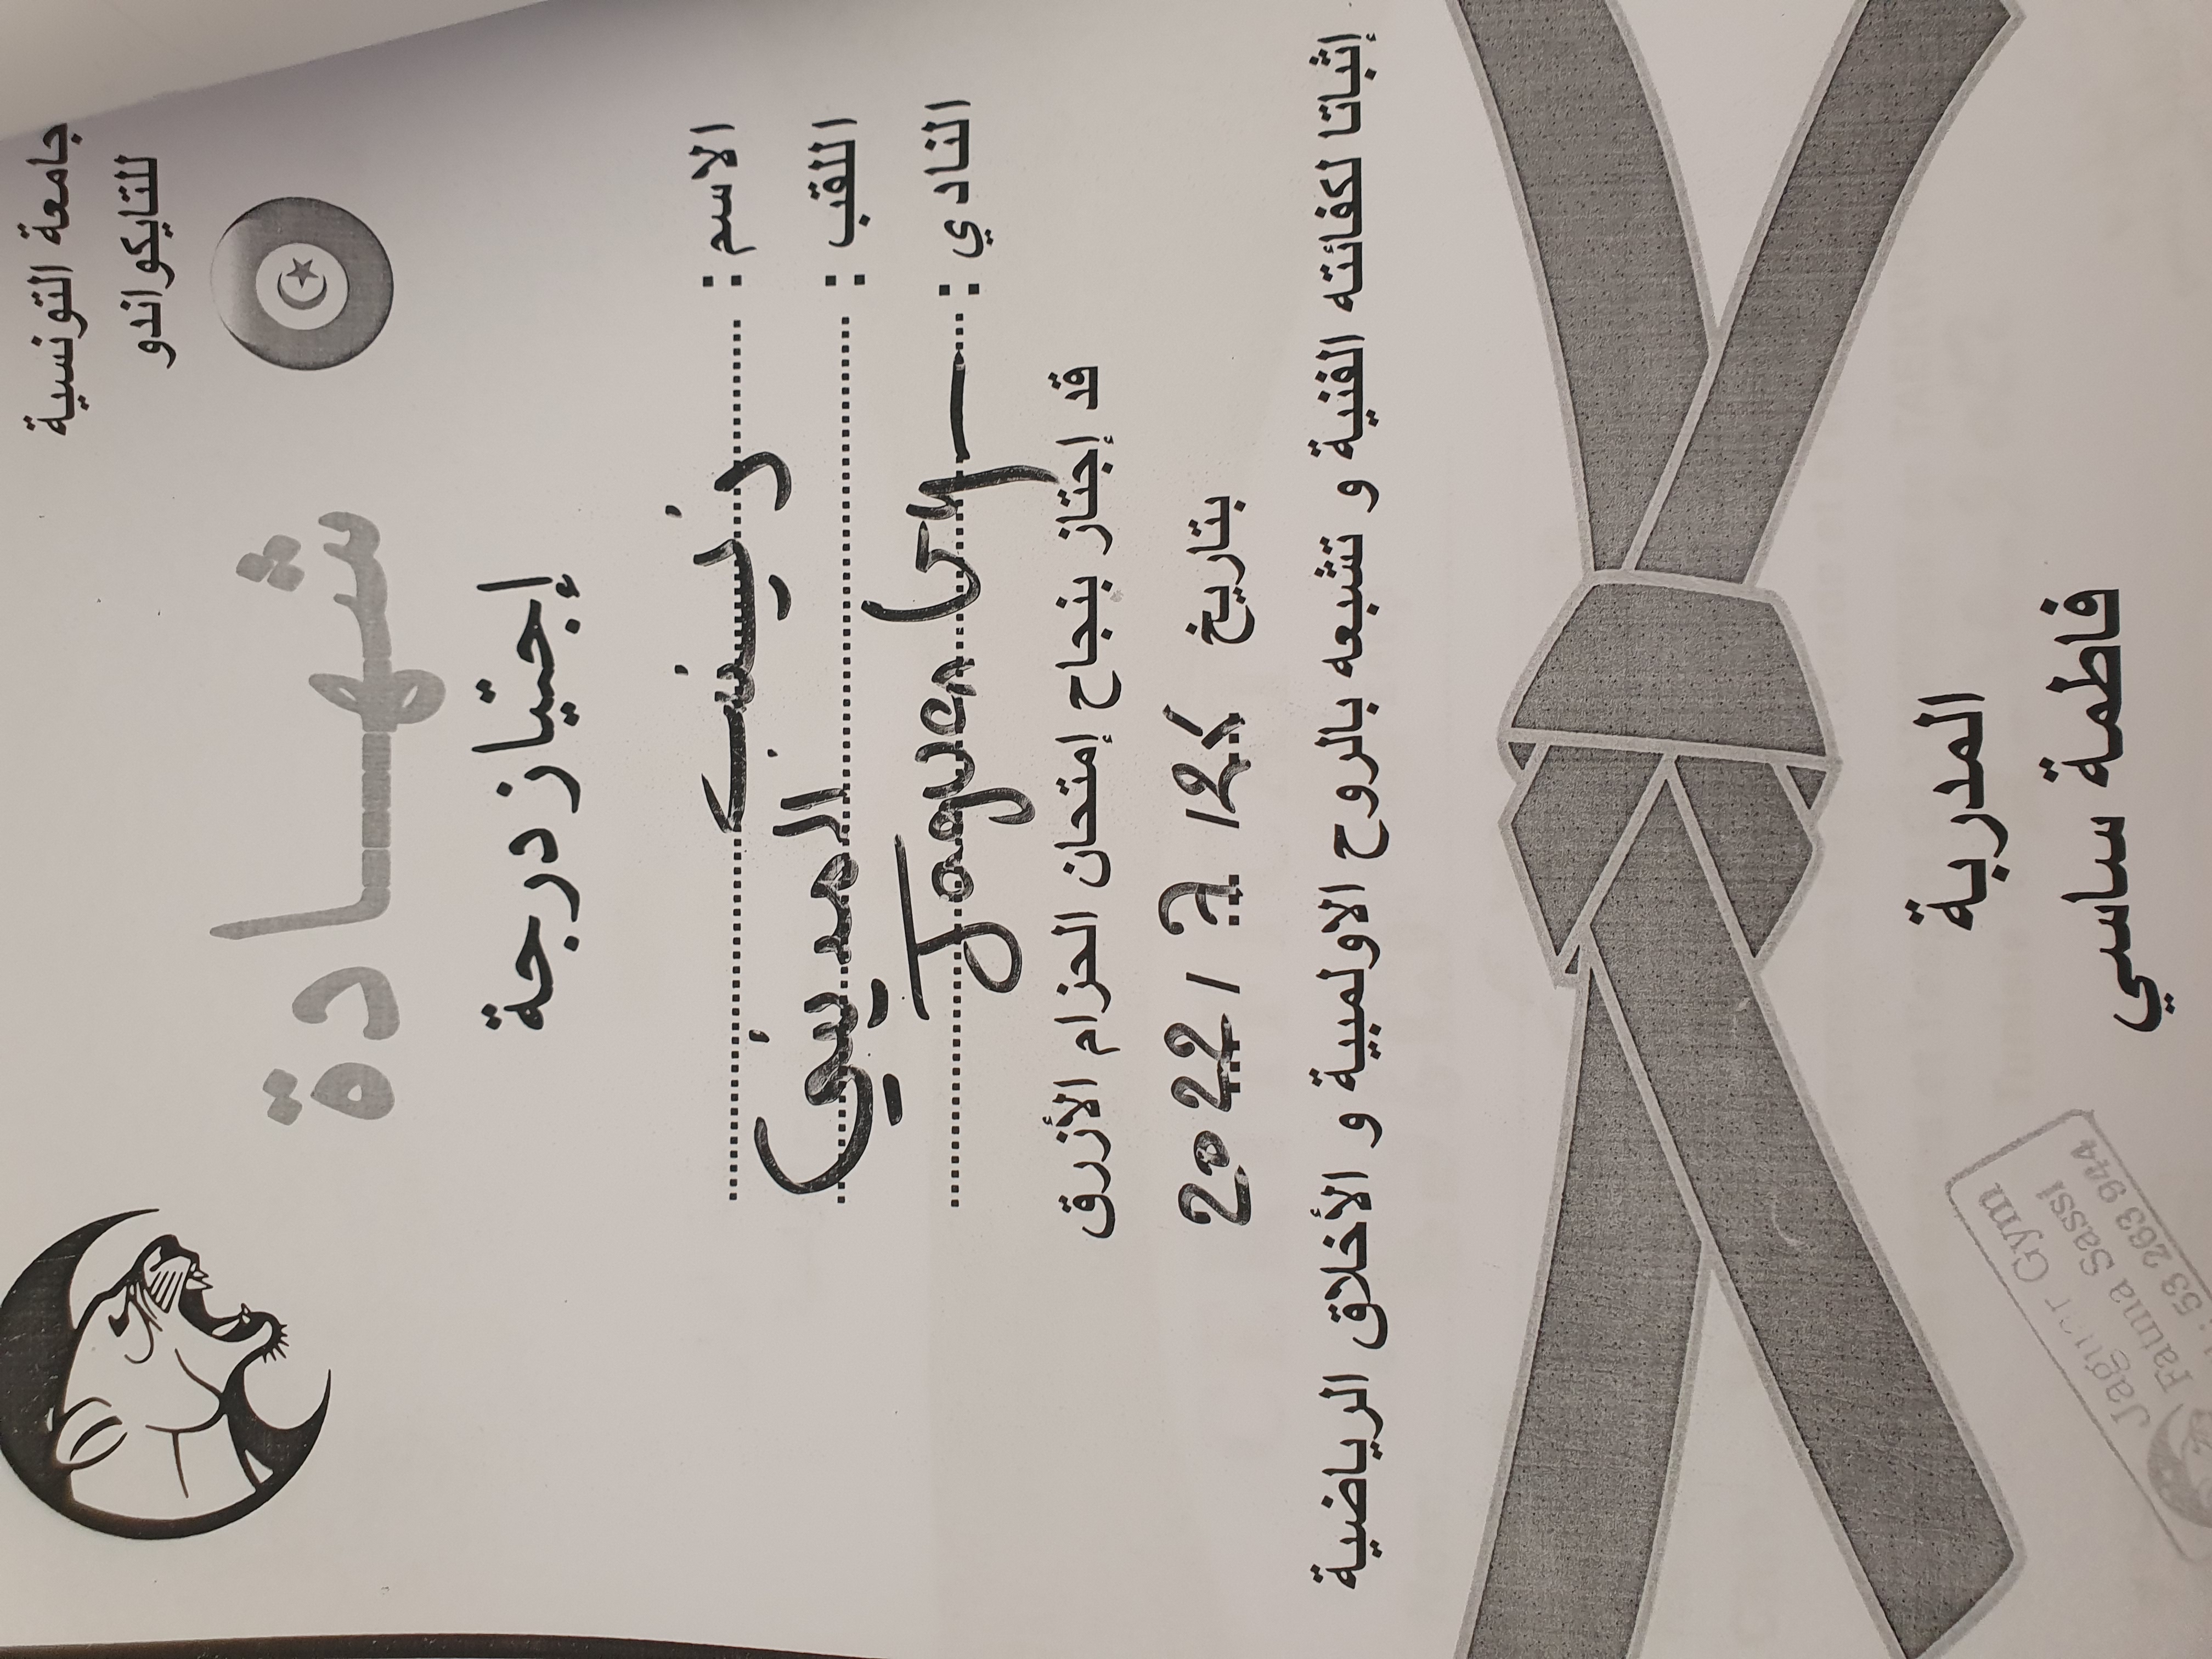 جامعة التونسية
للتايكواندو
شهادة
إجتياز درجة
الاسم : زينب
اللقب :
النادي : Jaguar Gym
قد إجتاز بنجاح إمتحان الحزام الأزرق
بتاريخ 2022 / 7 /
إثباتا لكفائته الفنية و تشبعه بالروح الاولمبية و الأخلاق الرياضية
المدربة
فاطمة ساسي
Jaguar Gym
Fatma Sassi
53 263 944